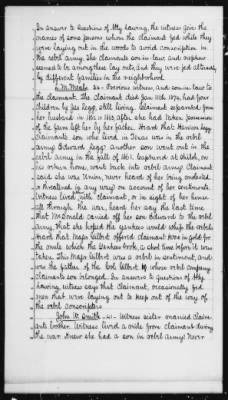 In answer to questions of Atty having, the witness give the
names of some persons whom the claimant fed while they
were laying out in the woods to avoid conscription in
the rebel army. The claimants son-in-law and nephew
seemed to be among these lay outs, and they were fed alternately
by different families in the neighborhood.
Previous witness, and son-in-law to
the claimant. The claimant died Jan 1874, had four
children by Jes Legg, still living. Claimant separated from
her husband in 1862 or 1863, after she had taken possession
of the farm left her by her father. Heard that
Claimants son who lived in Texas was in the rebel
army Edward Legg; another son went out in the
rebel army in the fall of 1861, captured at
his return home, went back into army Claimant
said she was Union, never heard of her being molested
or threatened in any way on account of her sentiments.
Witness lived with claimant, or in sight of her house
all through the war, heard her say the last time
that McDonald carried off her son Edward to the rebel
army, that she hoped the yankees would whip the rebels
Heard that Majr Calbert offered claimant in gold for
the mule which the Yankees took, a short time before it was
taken. This Majr Calbert was a rebel in sentiment, and
was the father of the Col Calbert whose rebel company
claimants son belonged. In answer to questions of Atty
having, witness says that Claimant, occasionally fed
men that were laying out to keep out of the way of
the rebel conscripters
John W. Smith - 41 - Witness sister married Claim-
ants brother. Witness lived a mile from claimant during
the war knew she had a son in rebel army; never